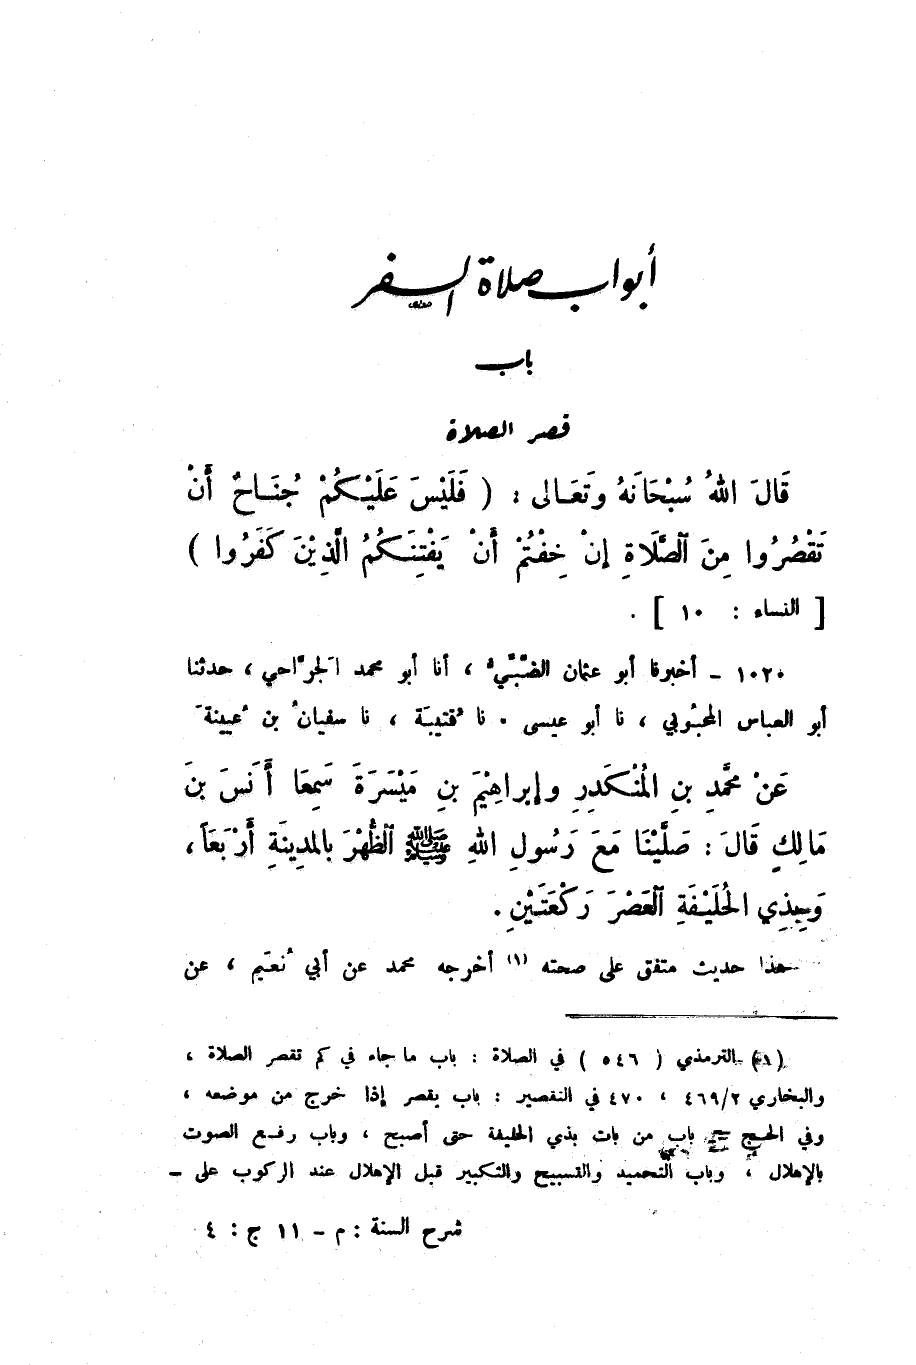 أبواب صلاة السفر
باب
قصر الصلاة
قَالَ اللهُ سُبْحَانَهُ وتَعَالى : ( فَلَيْسَ عَلَيْكُمْ جُنَاحٌ أَنْ
تَقْصُرُوا مِنَ الصَّلَاةِ إنْ خِفْتُمْ أَنْ يَفْتِنَكُمُ الَّذِيْنَ كَفَرُوا )
[ النساء : ١٠ ] .
١٠٢٠ - أخبرنا أبو عثمان الضَّبِّيُّ ، أنا أبو محمد الجرَّاحي ، حدثنا
أبو العباس المحبُوبي ، نا أبو عيسى . نا قُتيبَة ، نا سفيانُ بن عُيينةَ
عَنْ مُحَمَّدِ بنِ المُنْكَدِرِ وإبراهِيْمَ بنِ مَيْسَرَةَ سَمِعَا أَنَسَ بنَ
مَالِكٍ قَالَ : صَلَّيْنَا مَعَ رَسُولِ اللهِ ﷺ الظُّهْرَ بالمدِينَةِ أَرْبَعَاً ،
وَبِذِي الحُلَيْفَةِ العَصْرَ رَكْعَتَيْنِ .
هذا حديث متفق على صحته (١) أخرجه محمد عن أبي نُعَيم ، عن
(١) الترمذي ( ٥٤٦ ) في الصلاة : باب ما جاء في كم تقصر الصلاة ،
والبخاري ٤٦٩/٢ ، ٤٧٠ في التقصير : باب يقصر إذا خرج من موضعه ،
وفي الحج باب من بات بذي الحليفة حتى أصبح ، وباب رفع الصوت
بالإهلال ، وباب التحميد والتسبيح والتكبير قبل الإهلال عند الركوب على -
شرح السنة : م - ١١ ج : ٤